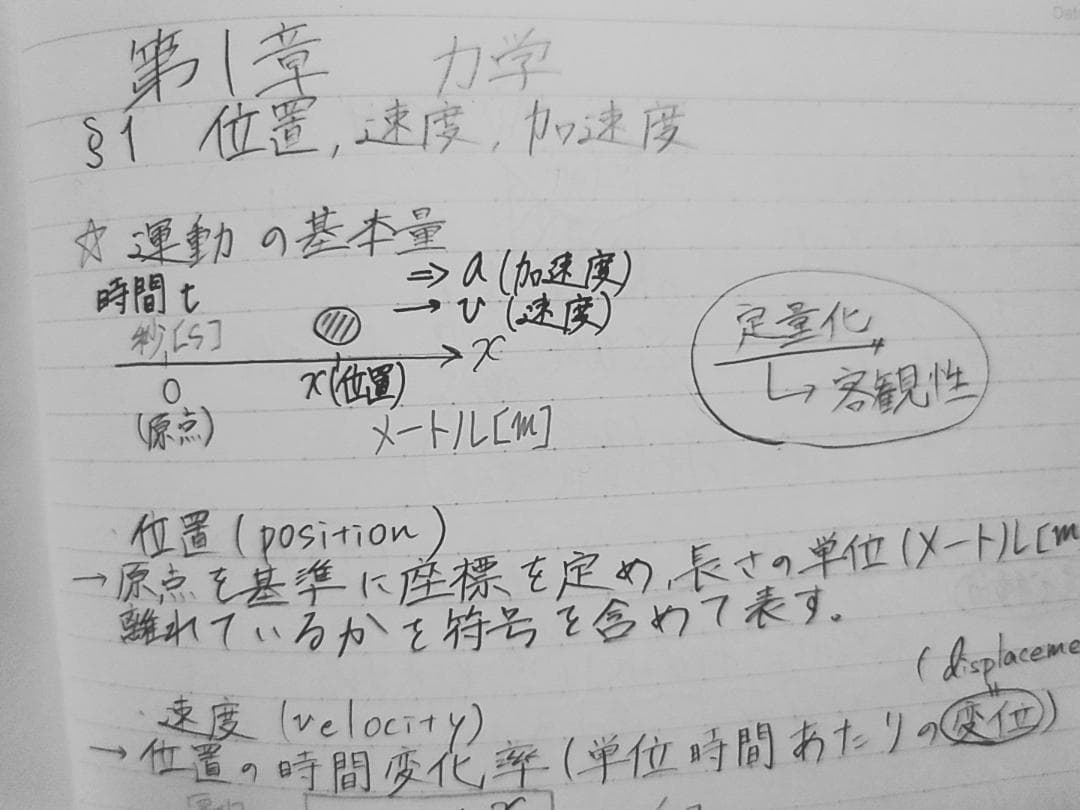 第1章 力学
§1 位置, 速度, 加速度
☆ 運動の基本量
時間 t
秒[S]
⇒ a (加速度)
→ v (速度)
x
0
(原点)
x(位置)
メートル[m]
定量化
↳ 客観性
・位置(position)
→原点を基準に座標を定め、長さの単位(メートル[m
離れているかを符号を含めて表す。
(displaceme
・速度(velocity)
→位置の時間変化率(単位時間あたりの変位)